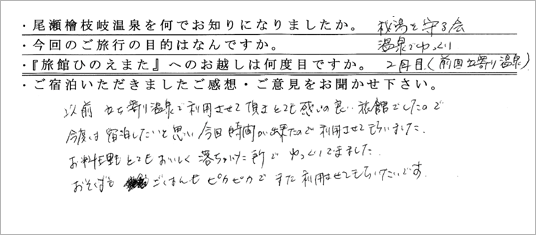 ・尾瀬檜枝岐温泉を何でお知りになりましたか。 秘湯を守る会
・今回のご旅行の目的はなんですか。 温泉でゆっくり
・『旅館ひのえまた』へのお越しは何度目ですか。 2回目(前回立寄り温泉)
・ご宿泊いただきましたご感想・ご意見をお聞かせ下さい。
以前 立ち寄り温泉で利用させて頂きとても感じの良い旅館でしたので
今度は宿泊したいと思い今回時間が出来たので利用させてもらいました。
お料理もとてもおいしく落ちついた所でゆっくりできました。
おそばも ごはんもピカピカで また利用させてもらいたいです。